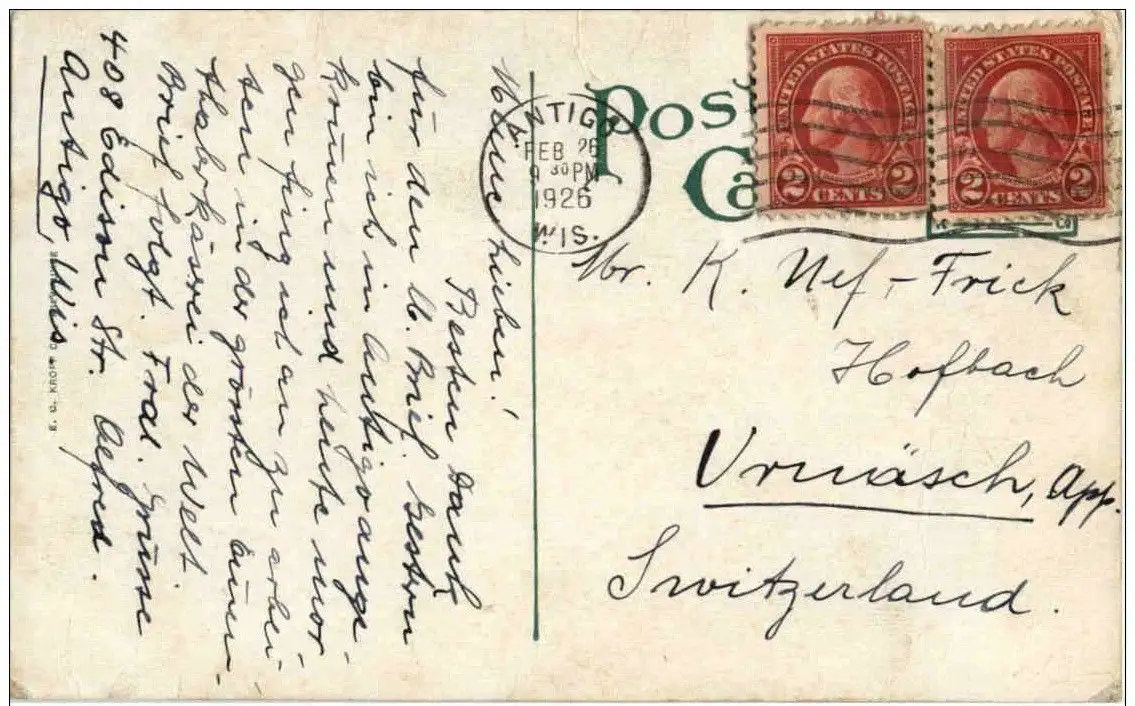 Meine Lieben!
Besten Dank
für den lb. Brief. Gestern
bin ich in Antigo ange-
kommen und heute mor-
gen fing ich an zu arbei-
ten in der grössten
der Welt
Brief folgt. Grüsse
Alfred.
408 Edison Str.
Antigo, Wis.
E. C. KROPP CO.
POST
CA
ANTIGO
FEB 26
9 30 PM
1926
WIS.
UNITED STATES POSTAGE
2 CENTS 2
UNITED STATES POSTAGE
2 CENTS 2
Mr. K. Nef-Frick
Hofbach
Urnäsch, App.
Switzerland.